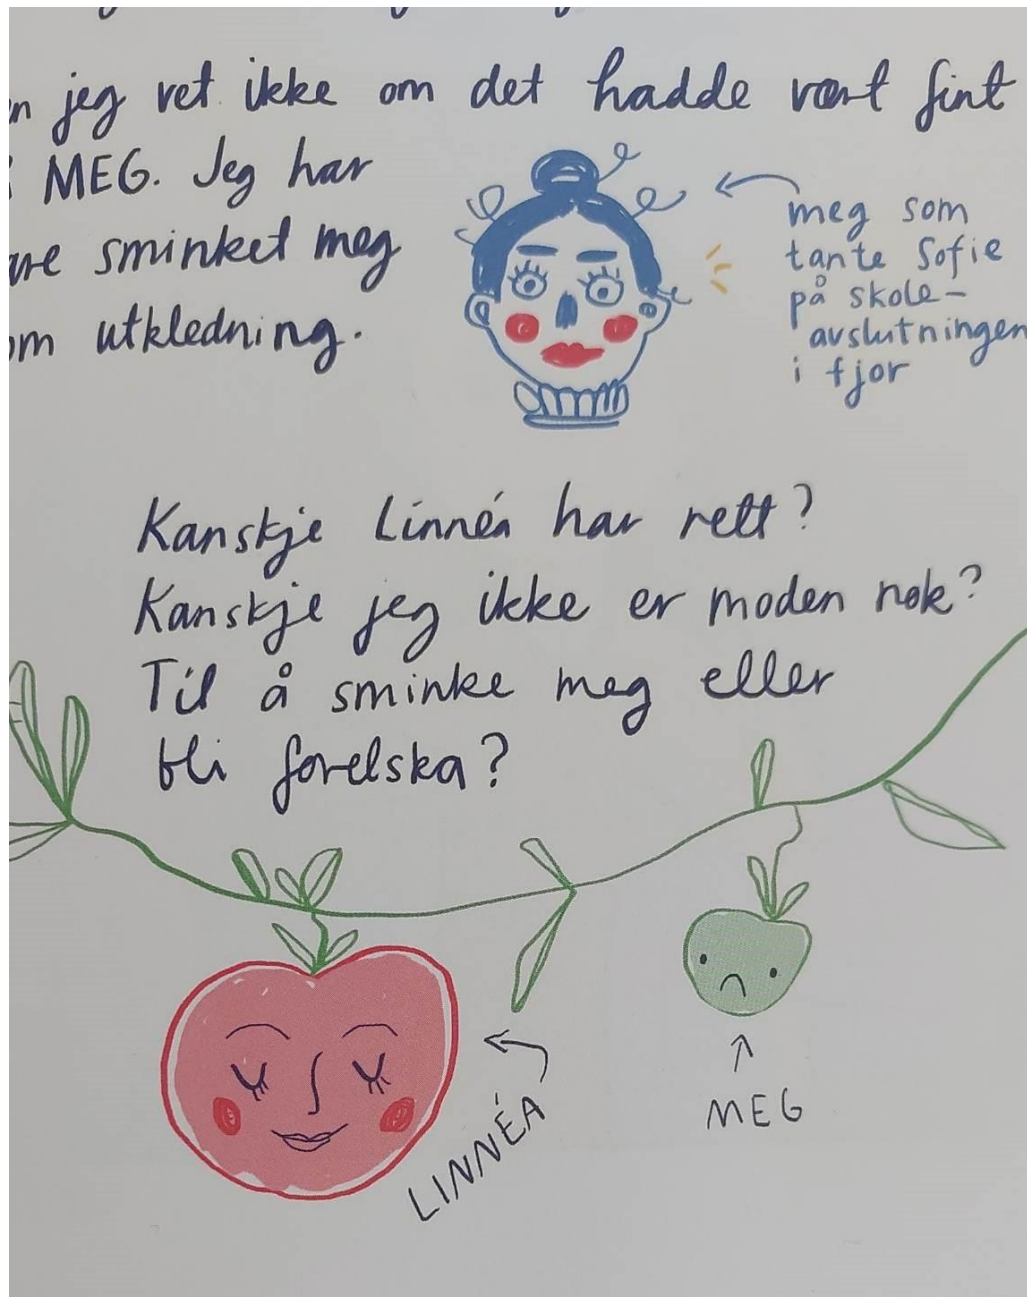 n jeg vet ikke om det hadde vært fint
MEG. Jeg har
are sminket meg
om utkledning.
meg som
tante Sofie
på skole-
avslutningen
i fjor
Kanskje Linnéa har rett?
Kanskje jeg ikke er moden nok?
Til å sminke meg eller
bli forelska?
LINNÉA
MEG